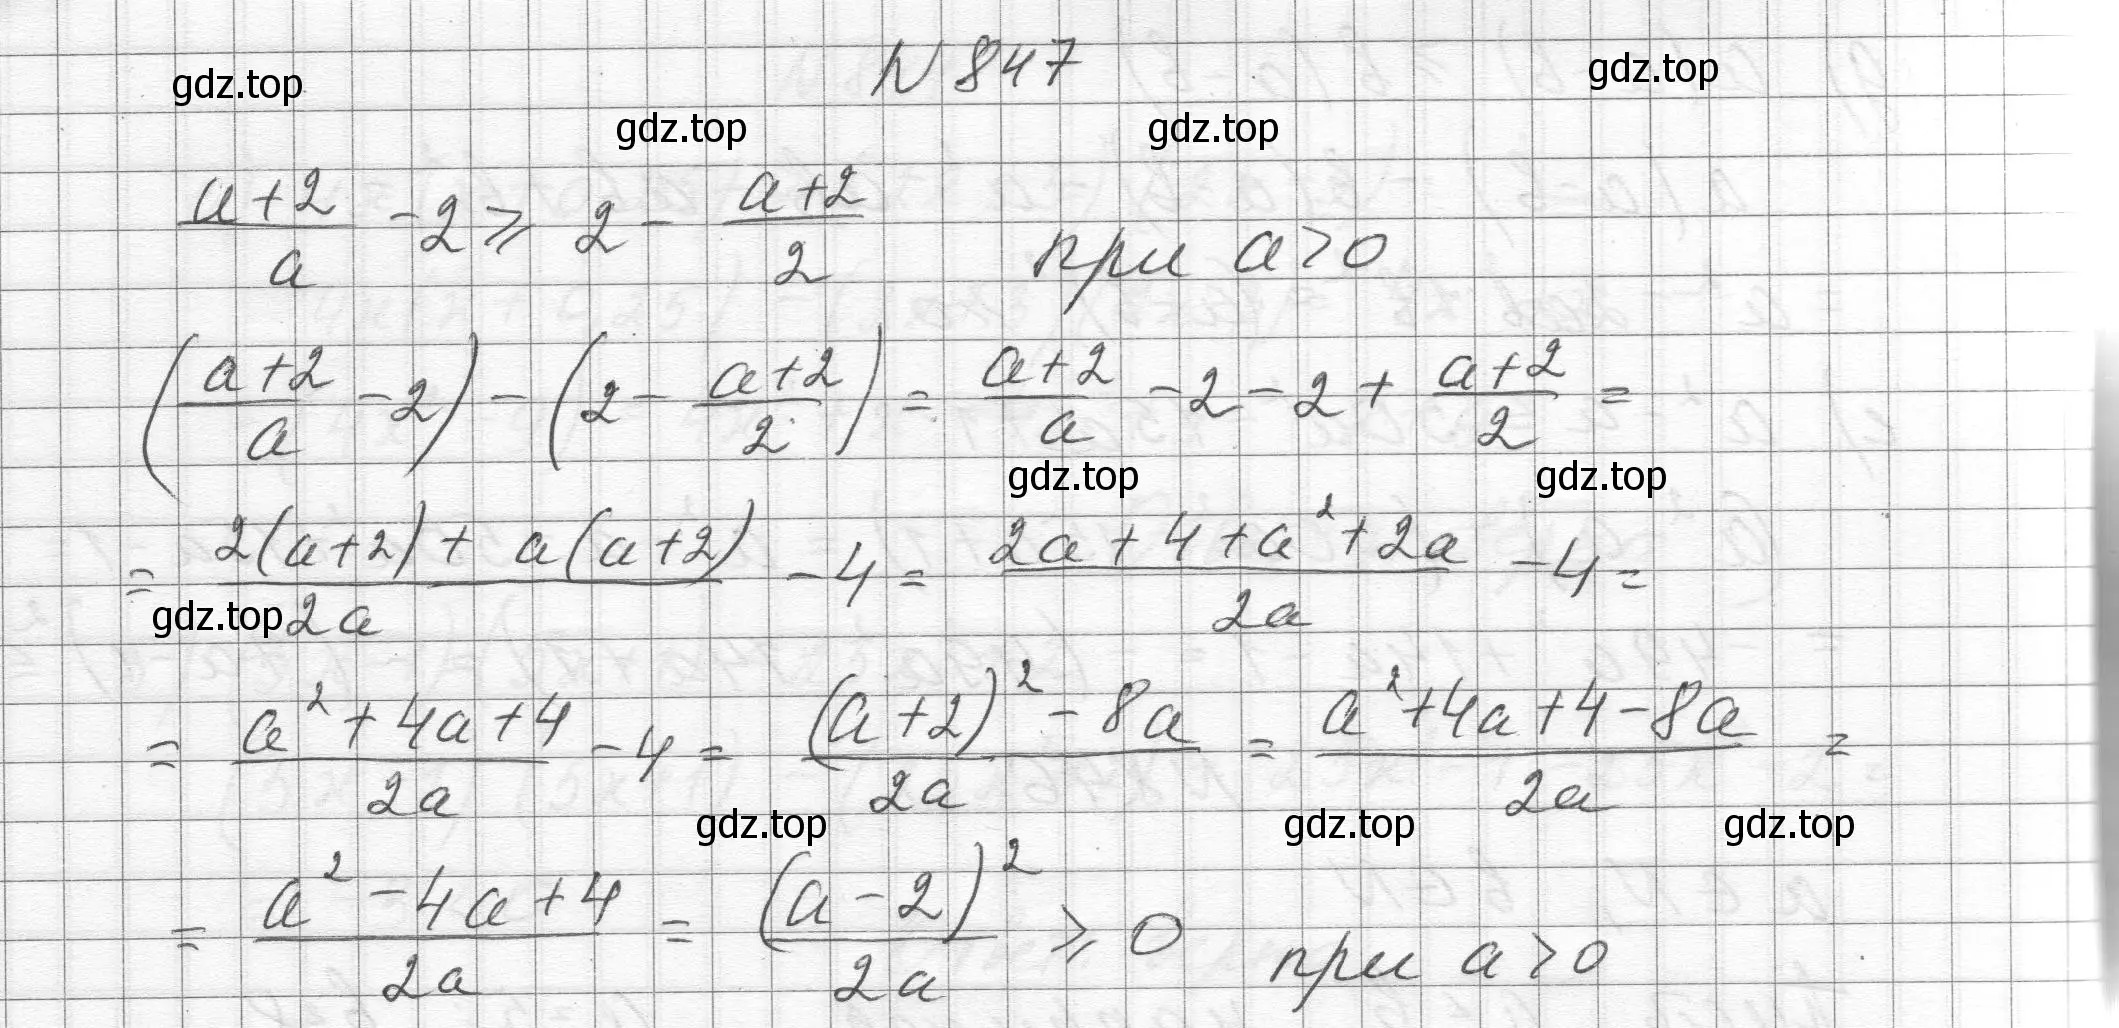 N 847
gdz.top gdz.top
gdz.top gdz.top
(a+2)/a - 2 ⩾ 2 - (a+2)/2 при a>0
((a+2)/a - 2) - (2 - (a+2)/2) = (a+2)/a - 2 - 2 + (a+2)/2 =
gdz.top gdz.top
= (2(a+2) + a(a+2))/2a - 4 = (2a + 4 + a² + 2a)/2a - 4 =
gdz.top
= (a² + 4a + 4)/2a - 4 = ((a+2)² - 8a)/2a = (a² + 4a + 4 - 8a)/2a =
gdz.top gdz.top gdz.top
= (a² - 4a + 4)/2a = (a - 2)²/2a ⩾ 0 при a>0